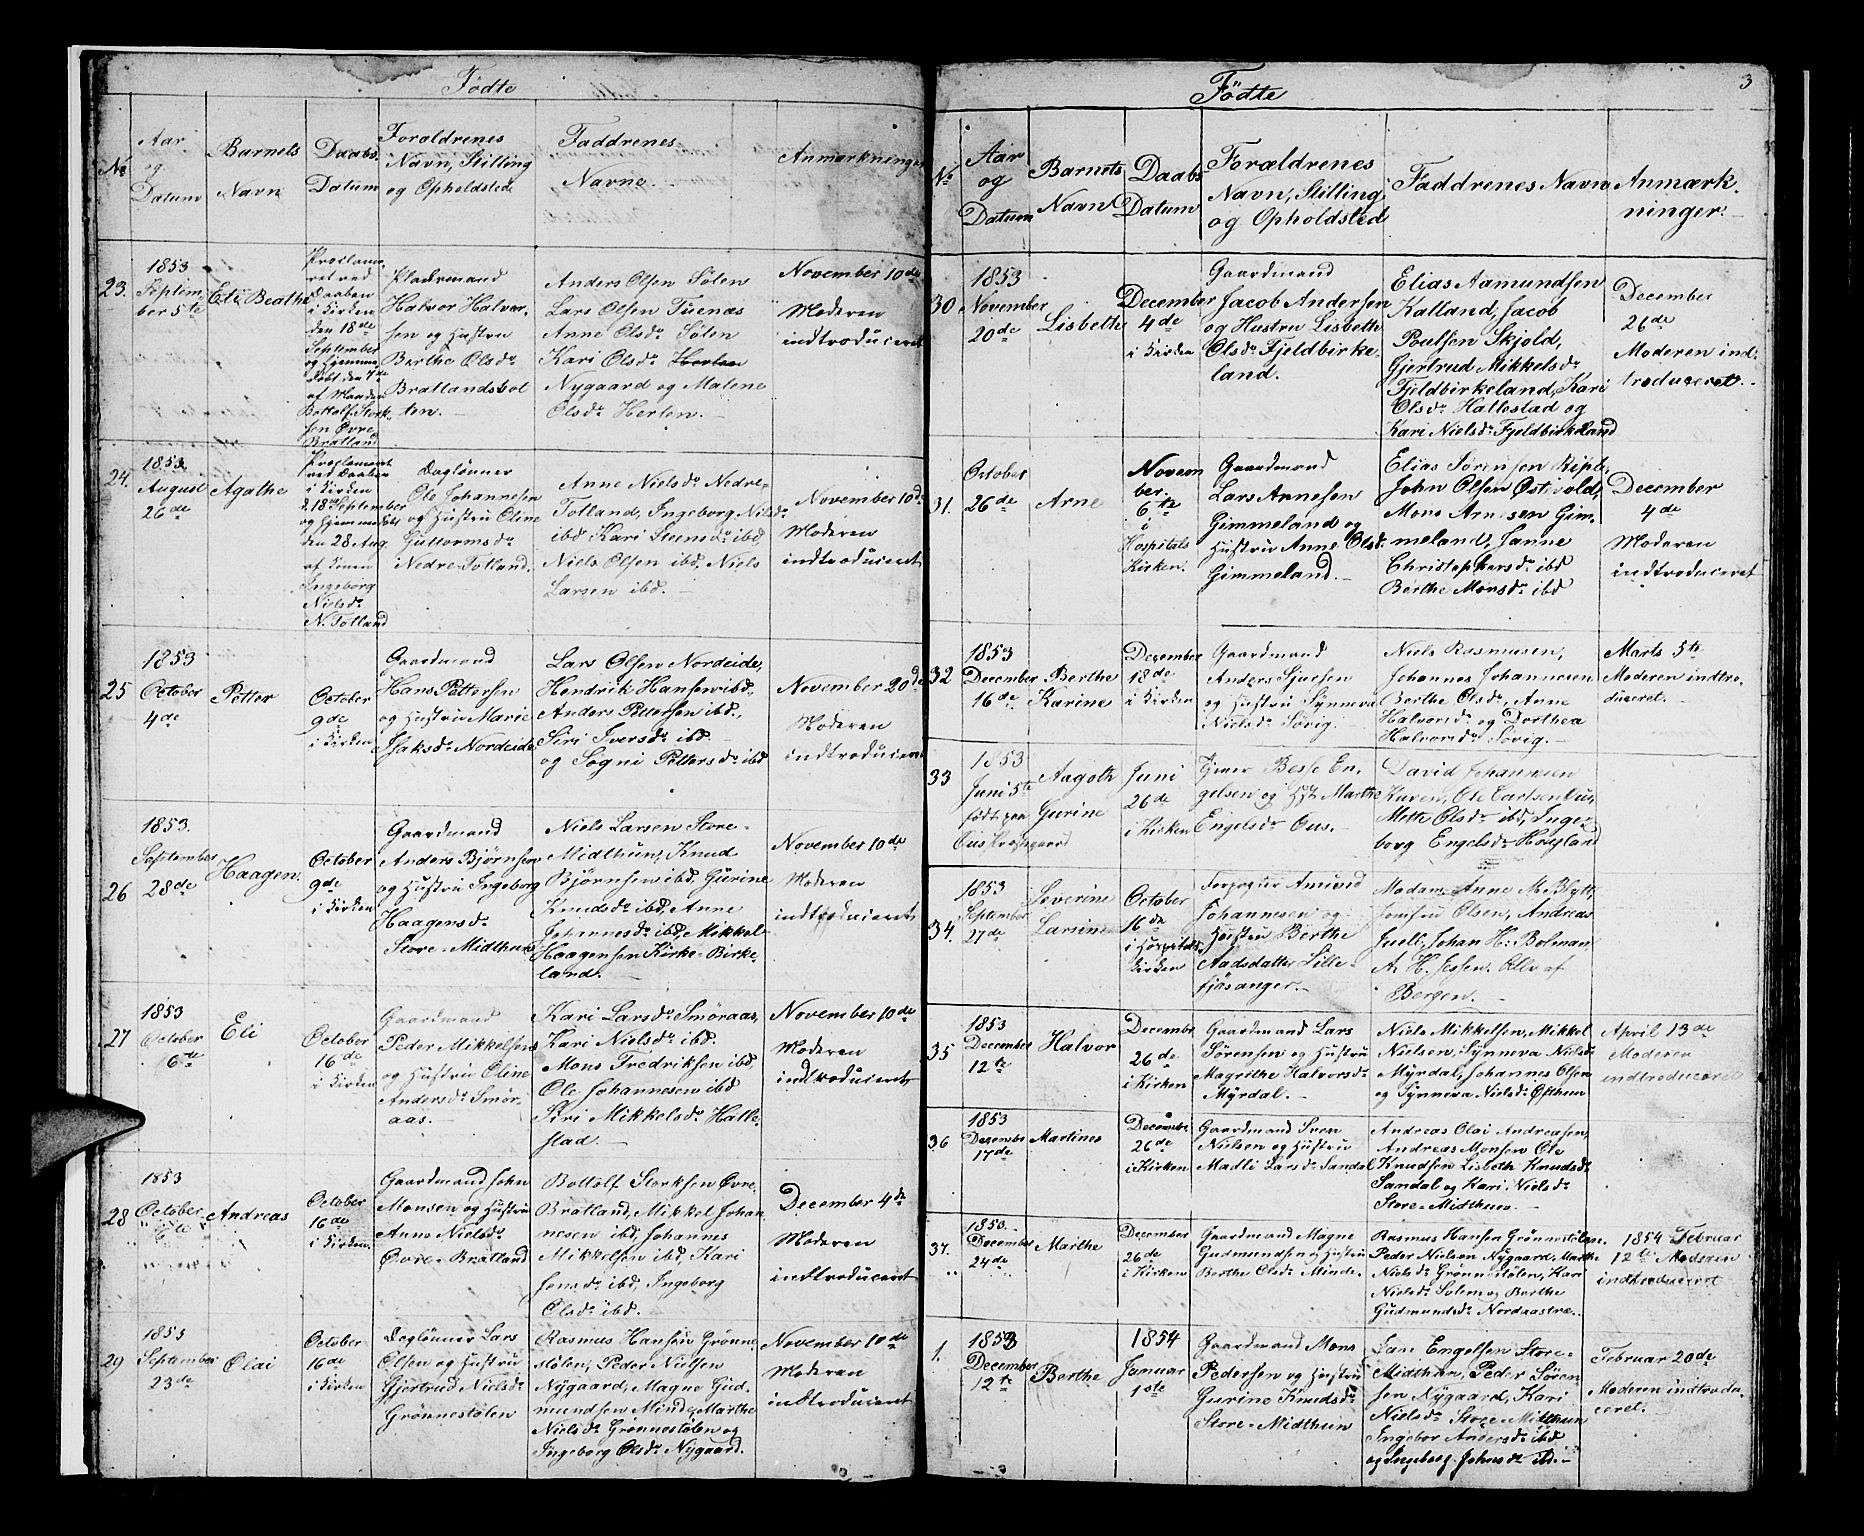 Födte
No
Aar
og
Datum
Barnets
Navn
Daabs
Datum
Forældrenes
Navn, Stilling
og Opholdsted
Faddrenes
Navne.
Anmærkninger
23.
1853
Septem-
ber 5te
Eli Beathe
Proclame-
ret ved
Daaben
i Kirken
den 18de
September
og hjemme-
døbt den 7de
af Manden
Bottolf Stork-
sen Øvre
Bratland
Pladsmand
Halvor Halvor-
sen og Hustru
Berthe Olsdr
Bratlandsbol
ten. -
Anders Olsen Sölen
Lars Olsen Tuenæs
Anne Olsdr Sölen
Kari Olsdr Herlen
Nygaard og Malene
Olsdr Herlen. -
November 10de
Moderen
indtroduceret
24.
1853
August
26de
Agathe
Proclameret
ved Daaben
i Kirken
d 18 September
og hjemmedöbt
den 28 Aug.
af Konen
Ingeborg
Nielsdr
N. Totland
Daglönner
Ole Johannesen
og Hustru Oline
Guttormsdr
Nedre-Totland.
Anne Nielsdr Nedre-
Totland, Ingeborg Nilsdr
ibd Kari Steensdr ibd
Niels Olsen ibd, Niels
Larsen ibd. -
November 10d
Moderen
indtroduceret
25
1853
October
4de
Petter
October
9de
i Kirken
Gaardmand
Hans Pettersen
og Hustru Marie
Isaksdr Nordeide
Lars Olsen Nordeide,
Hendrik Hansen ibd,
Anders Pettersen ibd,
Siri Iversdr ibd.
og Sogni Pettersdr ibd
November 20d
Moderen
indtroduceret
26
1853.
September
28de
Haagen.
October
9de
i Kirken
Gaardmand
Anders Björnsen
og Hustru Ingeborg
Haagensdr
Store-Midthun
Niels Larsen Store-
Midthun, Knud
Björnsen ibd, Gurine
Knudsdr ibd, Anne
Johannesdr ibd, Mikkel
Haagensen Kirke-Birke-
land. -
November 10de
Moderen
indtroduceret
27
1853
October
6te
Eli
October
16de
i Kirken
Gaardmand
Peder Mikkelsen
og Hustru Oline
Andersdr Smör-
aas. -
Kari Larsdr Smöraas,
Kari Nielsdr ibd.
Mons Fredriksen ibd
Ole Johannesen ibd
Siri Mikkelsdr Halle-
stad. -
November 10de
Moderen
indtroduceret
28
1853
October
6te
Andreas
October
16de
i Kirken.
Gaardmand John
Monsen og Hustru
Anne Nielsdr
Övre-Bratland
Bottolf Storksen Övre-
Bratland, Mikkel Johan-
nesen ibd, Johannes
Mikkelsen ibd, Kari
Jonsdr ibd, Ingeborg
Olsdr ibd. -
December 4de
Moderen
indtroduceret
29
1853
September
23de
Olai
October
16de
i Kirken
Daglönner Lars
Olsen og Hustru
Gjertrud Nielsdr
Grönnestölen
Rasmus Hansen Grönne-
stölen, Peder Nielsen
Nygaard, Magne Gud
mundsen Minde, Marthe
Nielsdr Grönnestölen og
Ingeborg Olsdr Nygaard.
November 10de
Moderen
indtroduceret
3
Födte
No
Aar
og
Datum
Barnets
Navn
Daabs
Datum
Forældrenes
Navn, Stilling
og Opholdsted
Faddrenes Navn
Anmærk-
ninger.
30
1853
November
20de
Lisbeth
December
4de
i Kirken
Gaardmand
Jacob Andersen
og Hustru Lisbeth
Olsdr Fjeldbirke-
land.
Elias Aamundsen
Kalland, Jacob
Poulsen Skjold,
Gjertrud Mikkelsdr
Fjeldbirkeland, Kari
Olsdr Hallestad og
Kari Nielsdr Fjeldbirkeland
December
26de
Moderen ind-
troduceret. -
31.
October
26de
Arne
Novem
ber
6te
i
Hospitals
Kirken.
Gaardmand
Lars Arnesen
Gimmeland og
Hustru Anne Olsdr
Gimmeland. -
Elias Sörensen
John Olsen Östvold,
Mons Arnesen Gim-
meland, Janne
Christophersdr ibd
Berthe Monsdr ibd
December
4de
Moderen
indtroduceret
32
1853
December
16de
Berthe
Karine
December
18de
i Kirken
Gaardmand
Anders Sjursen
og Hustru Synneva
Nielsdr Sövig. -
Niels Rasmusen,
Johannes Johannesen
Berthe Olsdr, Anne
Halvorsdr og Dorthea
Halvorsdr Sövig. -
Marts 5te
Moderen indtro-
duceret. -
33
1853
Juni 5te
født paa
Aagoth
Gurine
Juni
26de
i Kirken
Besse En-
gelsen og Hst Marthe
Engelsdr Ous. -
David Johannesen
Kuven, Ole Carlsen Ous,
Mette Olsdr ibd, Inge-
borg Engelsdr Hougland
34.
1853
September
27de
Severine
Larsine
October
16de
i Hospitals
Kirken
Forpagter Amund
Johannesen og
Hustru Berthe
Aadsdatter Lille-
fjösanger. -
Madam Anne M. Blytt,
Jomfru Olsen, Andreas
Juell, Johan H. Bolman
A. H. Jessen. Alle af
Bergen. -
35
1853
December
12te
Halvor
Decembr
26de
i Kirken
Gaardmand Lars
Sörensen og Hustru
Magrethe Halvorsdr
Myrdal. -
Niels Mikkelsen, Mikkel
Nielsen, Synneva Nielsdr
Myrdal, Johannes Olsen
og Synneva Nielsdr Östhun
April 13de
Moderen
indtroduceret
36
1853
December
17de
Martines
December
26de
i Kirken
Gaardmand Sven
Nielsen og Hustru
Madli Larsdr Sandal
Andreas Olai Andreasen,
Andreas Monsen Ole
Knudsen Lisbeth Knudsdr
Sandal og Kari Nielsdr
Store-Midthun. -
37.
1853.
December
24de
Marthe
December
26de
i Kirken
Gaardmand Magne
Gudmundsen og Hustru
Berthe Olsdr Minde.
Rasmus Hansen Grönnestölen.
Peder Nielsen Nygaard, Marthe
Nielsdr Grönnestölen, Kari
Nielsdr Solem og Berthe
Gudmundsdr Nordaastræ.
1854 Februar
12te Moderen
indtroduceret
1.
1853
December
12te
Berthe
1854
Januar
1ste
Gaardmand Mons
Pedersen og Hustru
Gurine Knudsdr
Store-Midthun
Lars Engelsen Store-
Midthun, Peder Sören-
sen Nygaard, Kari
Nielsdr Store-Midthun
Ingebor Andersdr ibd
og Ingeborg Johnsdr ibd. -
Februar 20de
Moderen indtrodu-
ceret. -